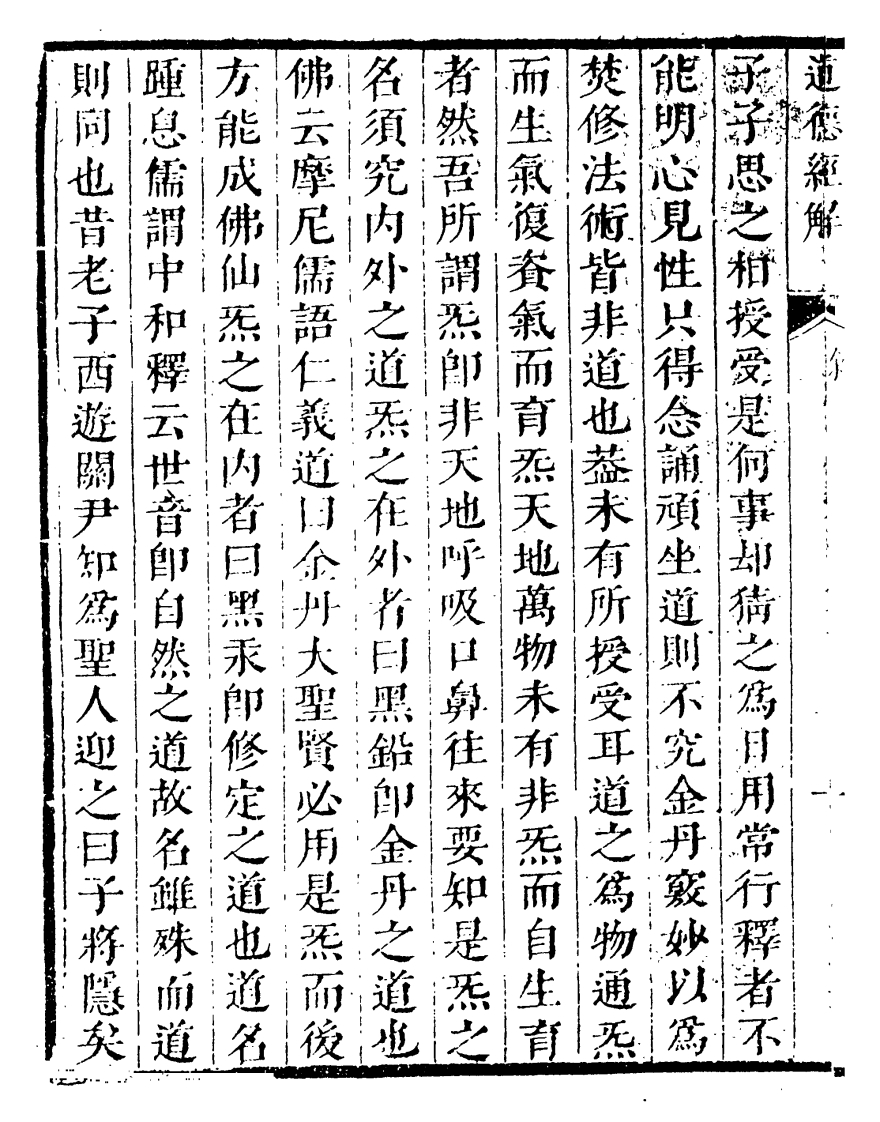 道德經解
子子思之相授受是何事却猜之爲日用常行釋者不
能明心見性只得念誦頑坐道則不究金丹竅妙以爲
焚修法術皆非道也葢未有所授受耳道之爲物通炁
而生氣復資氣而育炁天地萬物未有非炁而自生育
者然吾所謂炁卽非天地呼吸口鼻往來要知是炁之
名須究内外之道炁之在外者曰黑鉛卽金丹之道也
佛云摩尼儒語仁義道曰金丹大聖賢必用是炁而後
方能成佛仙炁之在内者曰黑汞卽修定之道也道名
踵息儒謂中和釋云世音卽自然之道故名雖殊而道
則同也昔老子西遊關尹知爲聖人迎之曰子將隱矣